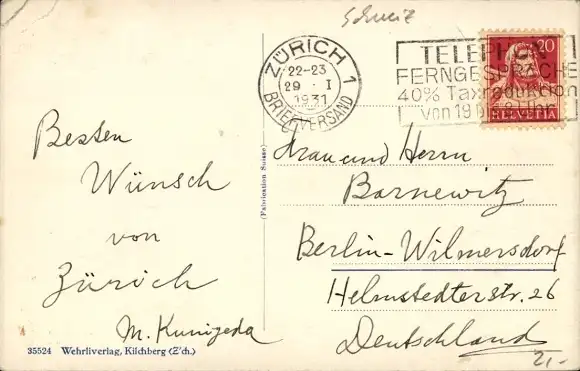 Schweiz
ZÜRICH 1
22-23
29 · I
1931
BRIEFVERSAND
TELEPHON
FERNGESPRÄCHE
40% Taxreduktion
von 19 bis 8 Uhr
20
HELVETIA
Besten
Wünsch
von
Zürich
M. Kunizeda
(Fabrication Suisse)
Frau und Herrn
Barnewitz
Berlin-Wilmersdorf
Helmstedterstr. 26
Deutschland
21.-
35524 Wehrliverlag, Kilchberg (Z'ch.)